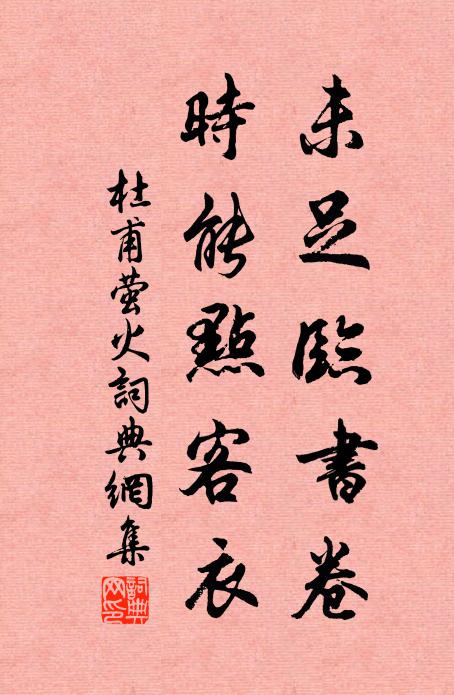 未足臨書卷
時能點客衣
杜甫螢火詞典網集
詞典网印